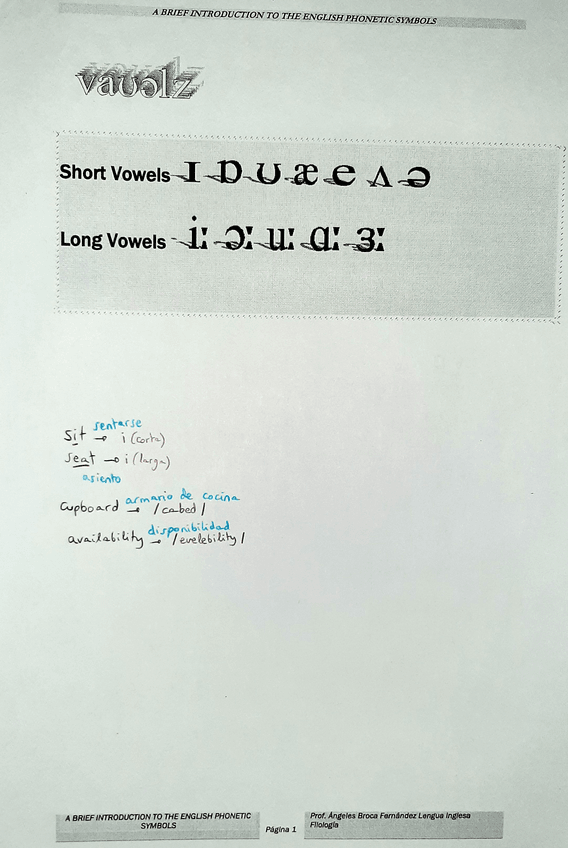 A BRIEF INTRODUCTION TO THE ENGLISH PHONETIC SYMBOLS
vaʊəlz
Short Vowels ɪ ɒ ʊ æ e ʌ ə
Long Vowels iː ɔː uː ɑː ɜː
sentarse
sit → i (corta)
seat → i (larga)
asiento
armario de cocina
cupboard → /cabed/
disponibilidad
availability → /evelebility/
A BRIEF INTRODUCTION TO THE ENGLISH PHONETIC
SYMBOLS
Página 1
Prof. Ángeles Broca Fernández Lengua Inglesa
Filología